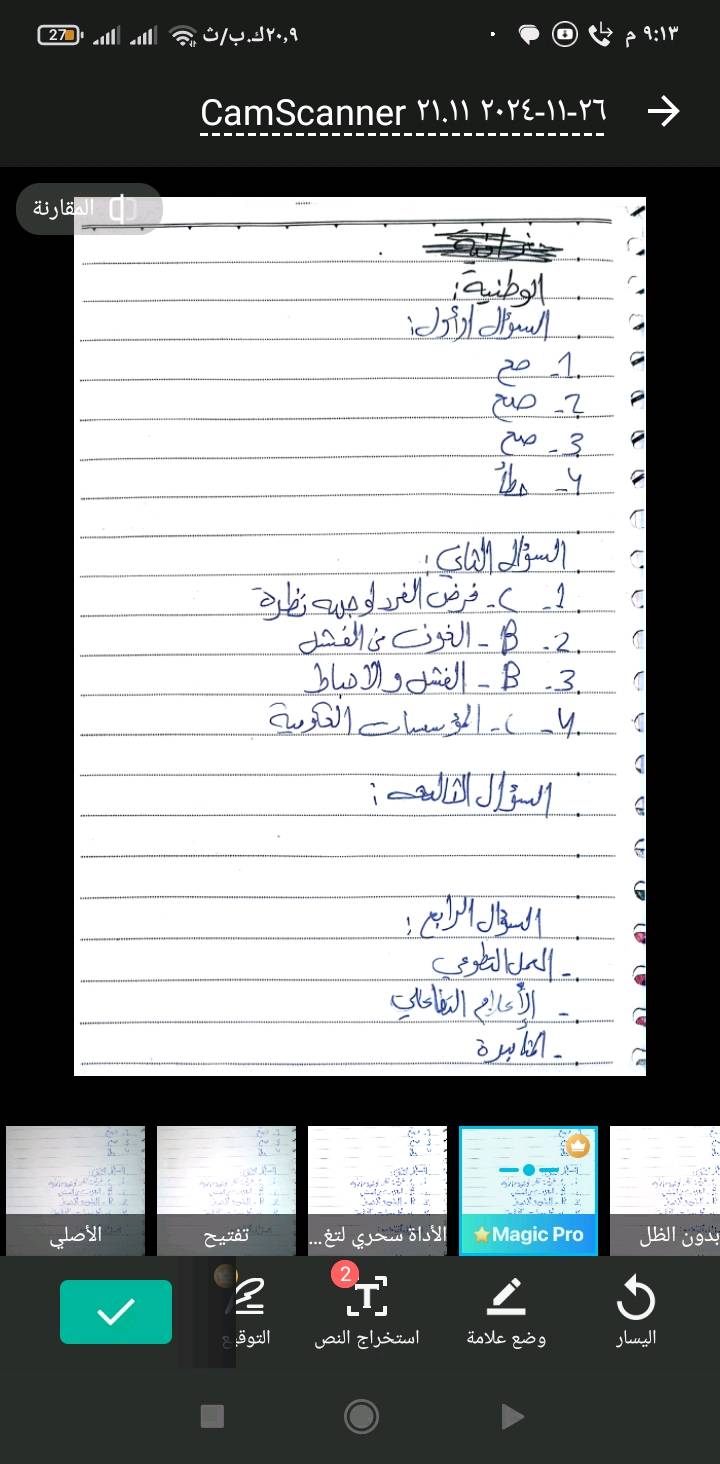 ٩:١٣ م
٢٠,٩ك.ب/ث
27
CamScanner ٢١.١١ ٢٠٢٤-١١-٢٦
المقارنة
الوطنية:
السؤال الأول:
1- صح
2- صح
3- صح
4- خطأ
السؤال الثاني:
1- C- فرض الفرد لوجهه نظرة
2- B - الخوف من الفشل
3- B - الفشل والاحباط
4- C- المؤسسات الحكومية
السؤال الثالث:
السؤال الرابع:
- العمل التطوعي
- الإعلام التفاعلي
- المثابرة
بدون الظل
Magic Pro
الأداة سحري لتغ...
تفتيح
الأصلي
اليسار
وضع علامة
2
استخراج النص
التوقيع